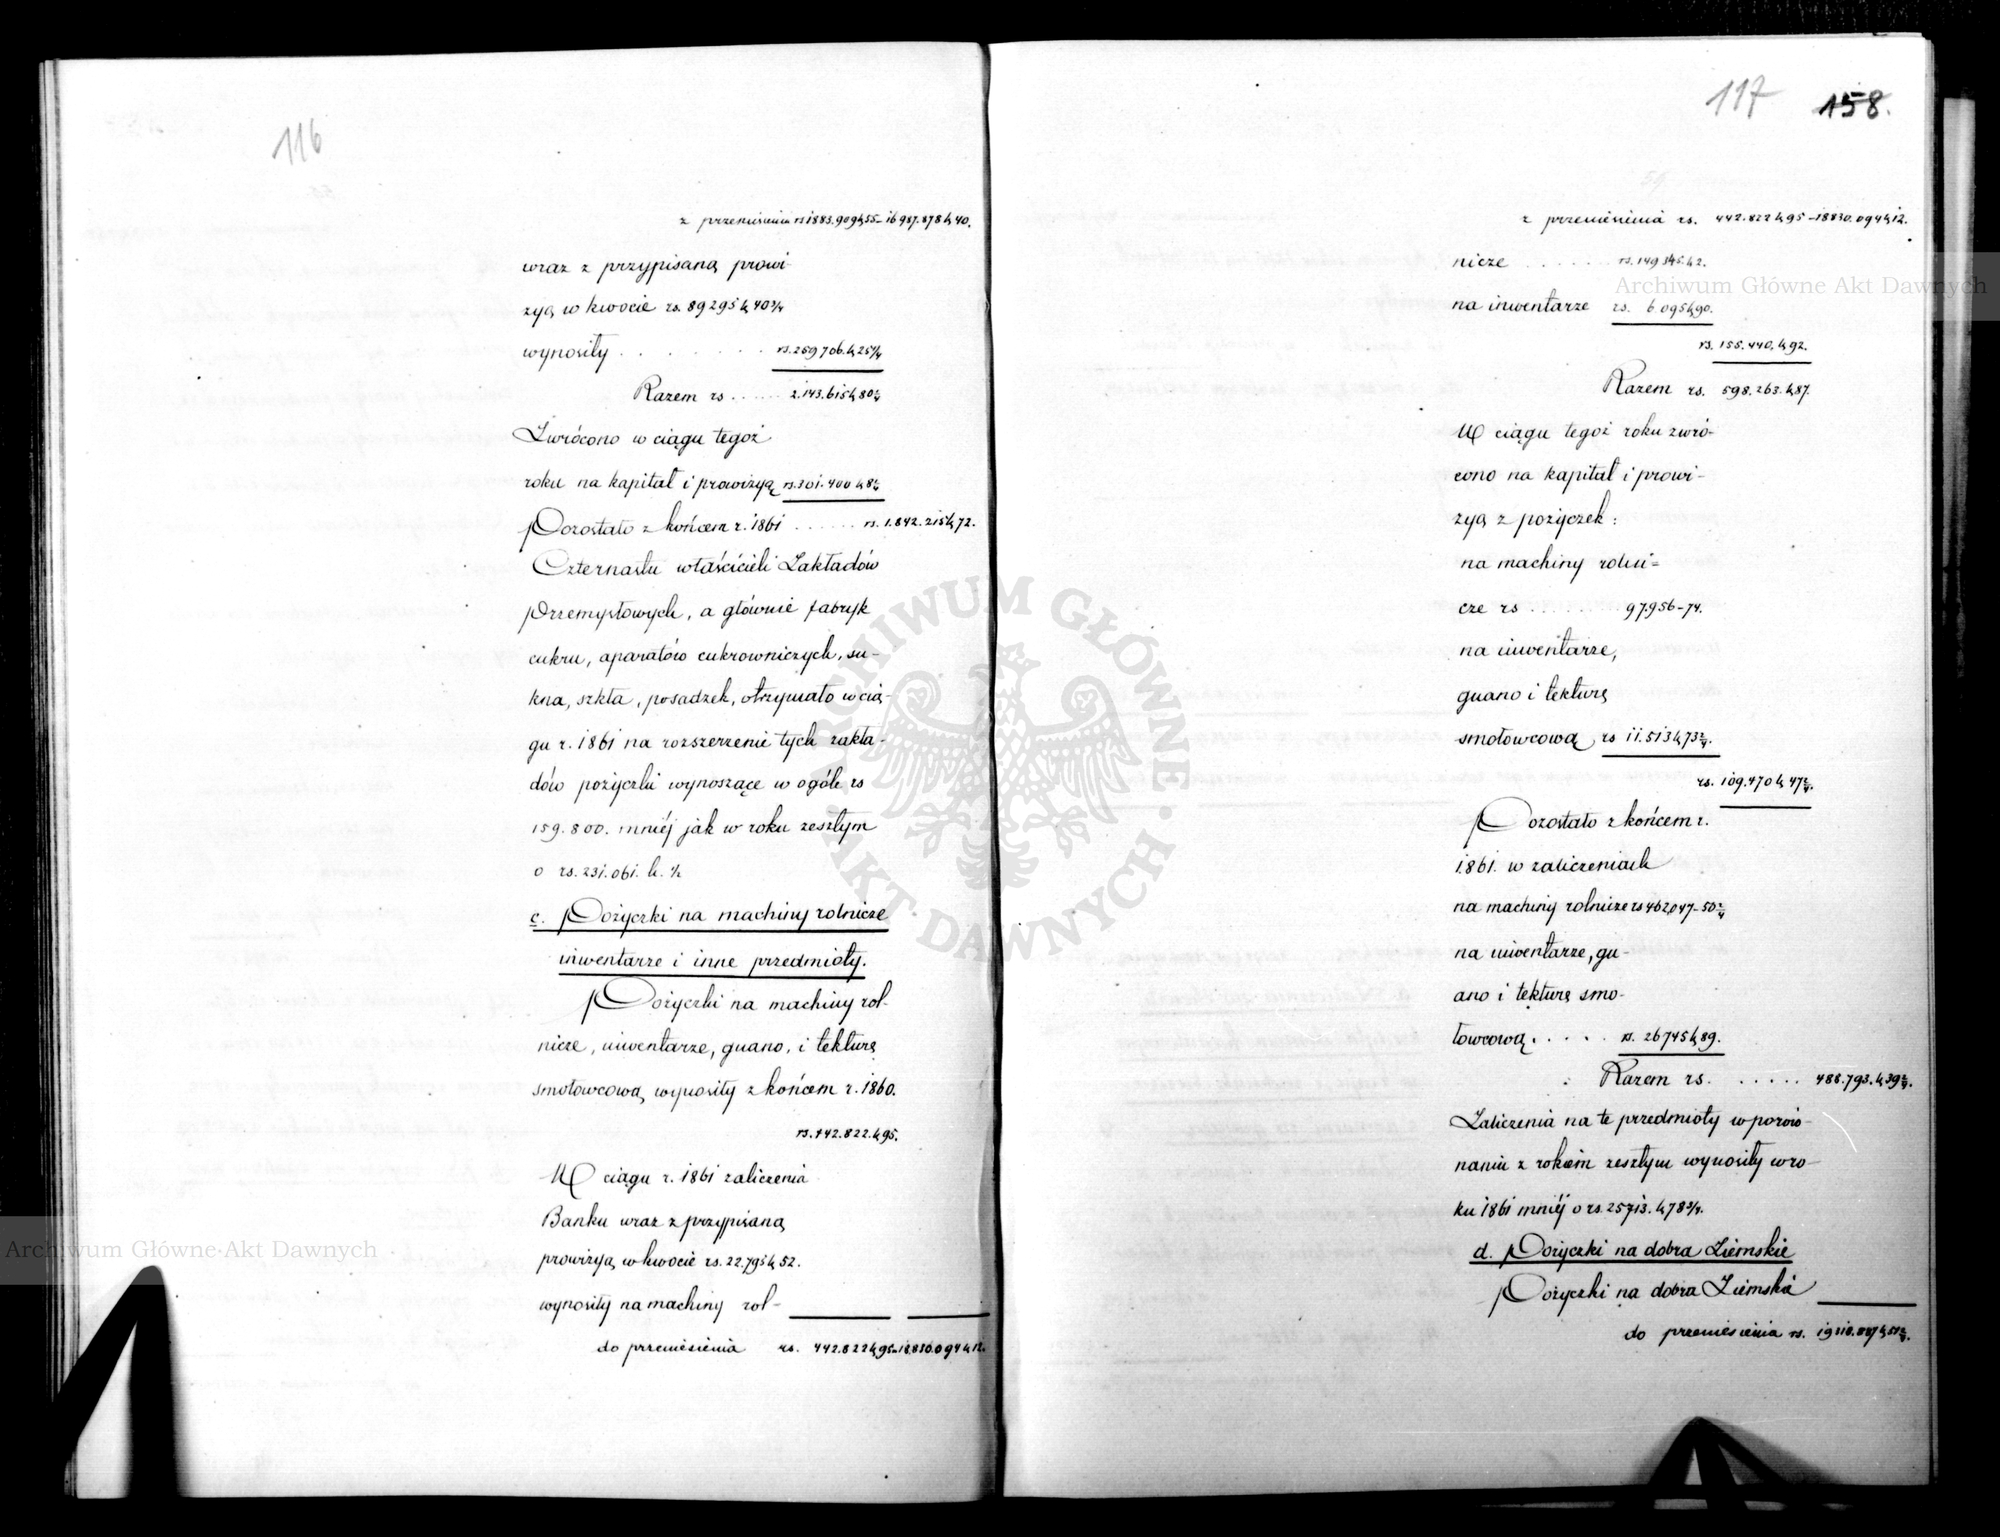 116
z przeniesienia rs 1883.909 k 55 – 16 987.878 k 40.
wraz z przypisaną prowi-
zyą w kwocie rs. 89295 k 40 3/4
wynosiły . . . . . . . rs. 259706. k 25 1/4
Razem rs . . . . . 2.143.615 k 80 2/4
Zwrócono w ciągu tegoż
roku na kapitał i prowizyą rs. 301.400 k 8 2/4
Pozostało z końcem r. 1861 . . . . . . rs. 1.842.215 k 72.
Czternastu właścicieli Zakładów
Przemysłowych, a głównie fabryk
cukru, aparatów cukrowniczych, su-
kna, szkła, posadzek, otrzymało w cią-
gu r. 1861 na rozszerzenie tych zakła-
dów pożyczki wynoszące w ogóle rs
159.800. mniéj jak w roku zeszłym
o rs. 231.061. k. 1/2
c. Pożyczki na machiny rolnicze
inwentarze i inne przedmioty.
Pożyczki na machiny rol-
nicze, inwentarze, guano, i tekturę
smołowcową wynosiły z końcem r. 1860.
rs. 442.822. k 95.
W ciągu r. 1861 zaliczenia
Banku wraz z przypisaną
prowizyą w kwocie rs. 22.795 k 52.
wynosiły na machiny rol-
do przeniesienia rs. 442.822 k 95 – 18.830.094 k 12.
117 158.
z przeniesienia rs. 442.822 k 95 – 18830.094 k 12.
nicze . . . . . . rs. 149345. k 2.
na inwentarze rs. 6095 k 90.
rs. 155.440. k 92.
Razem rs. 598.263. k 87.
W ciągu tegoż roku zwró-
cono na kapitał i prowi-
zyą z pożyczek:
na machiny rolni=
cze rs . . . . . . . 97.956 – 74.
na inwentarze,
guano i tekturę
smołowcową rs 11.513 k 73 2/4.
rs. 109.470 k 47 2/4.
Pozostało z końcem r.
1861. w zaliczeniach
na machiny rolnicze rs 462047 – 50 2/4
na inwentarze, gu-
ano i tekturę smo-
łowcową . . . . . rs. 26745 k 89.
Razem rs. . . . . . 488.793. k 39 2/4.
Zaliczenia na te przedmioty w porów-
naniu z rokiem zeszłym wynosiły w ro-
ku 1861 mniéj o rs. 25713. k 78 3/4.
d. Pożyczki na dobra Ziemskie
Pożyczki na dobra Ziemskie
do przeniesienia rs. 19318.887 k 51 2/4.
Archiwum Główne Akt Dawnych
Archiwum Główne Akt Dawnych
ARCHIWUM GŁÓWNE · AKT · DAWNYCH ·